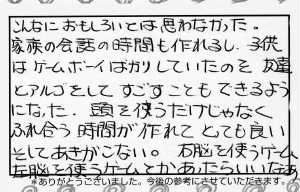 こんなにおもしろいとは思わなかった。
家族の会話の時間も作れるし、子供
はゲームボーイばかりしていたのを 友達
とアルゴをしてすごすこともできるよう
になった。頭を使うだけじゃなく
ふれ合う時間が作れてとても良い
そしてあきがこない。右脳を使うゲーム、
左脳を使うゲームとかあったらいいなぁ
*ありがとうございました。今後の参考にさせていただきます。